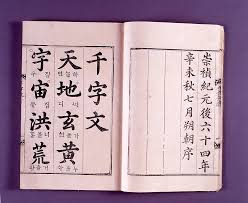 崇禎紀元後六十四年
辛未秋七月朔朝序
千字文
天地玄黃
宇宙洪荒